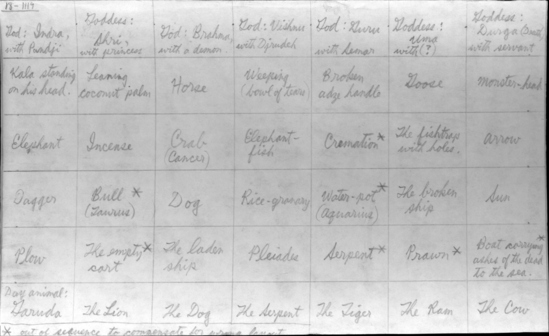 18-1117
God: Indra, with Pandji
Goddess: Shri, with princess
God: Brahma, with a demon.
God: Vishnu with
God: Guru with
Goddess: Uma with (?)
Goddess: Durga with servant
Kala standing on his head.
Leaning coconut palm
Horse
Weeping bowl of tears
Broken adze handle
Goose
Monster-head
Elephant
Incense
Crab (Cancer)
Elephant-fish
Cremation *
The fishtrap with holes.
Arrow
Dagger
Bull * (Taurus)
Dog
Rice-granary
Water-pot * (Aquarius)
The broken ship
Sun
Plow
The empty * cart
The laden ship
Pleiades
Serpent *
Prawn *
Boat carrying * ashes of the dead to the sea.
Day animal: Garuda
The Lion
The Dog
The Serpent
The Tiger
The Ram
The Cow
* out of sequence to compensate for